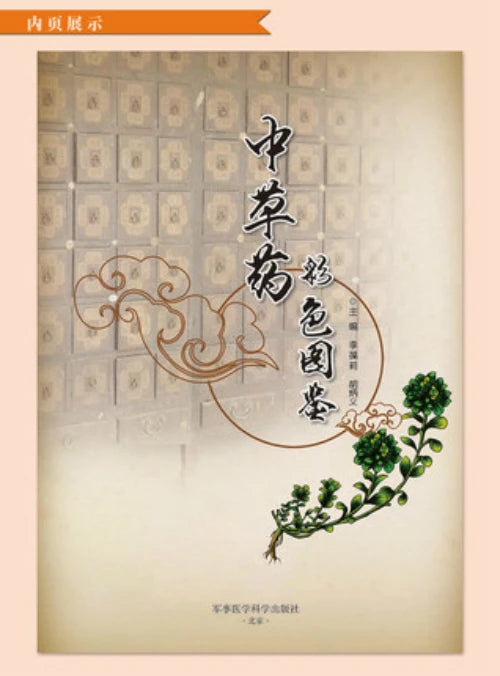 内页展示
中草药
彩色图鉴
◎主 编 李葆莉 胡炳义
军事医学科学出版社
·北京·